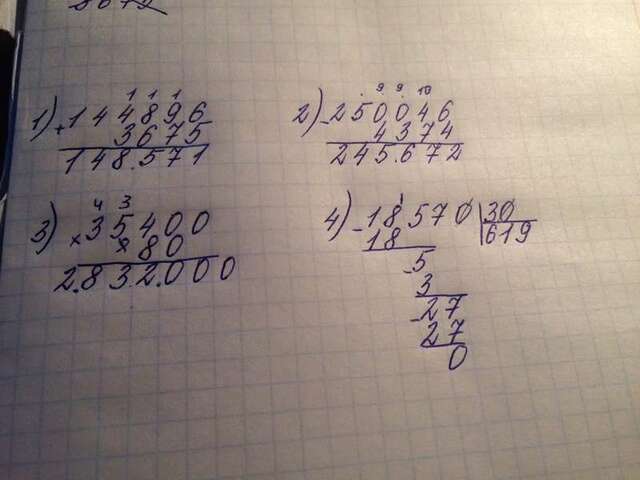 1 1 1
1) + 144896
3675
148.571
9 9 10
2) - 250046
4374
245.672
4 3
3) × 35400
80
2.832.000
4) - 18570 | 30
18 619
- 5
3
- 27
27
0